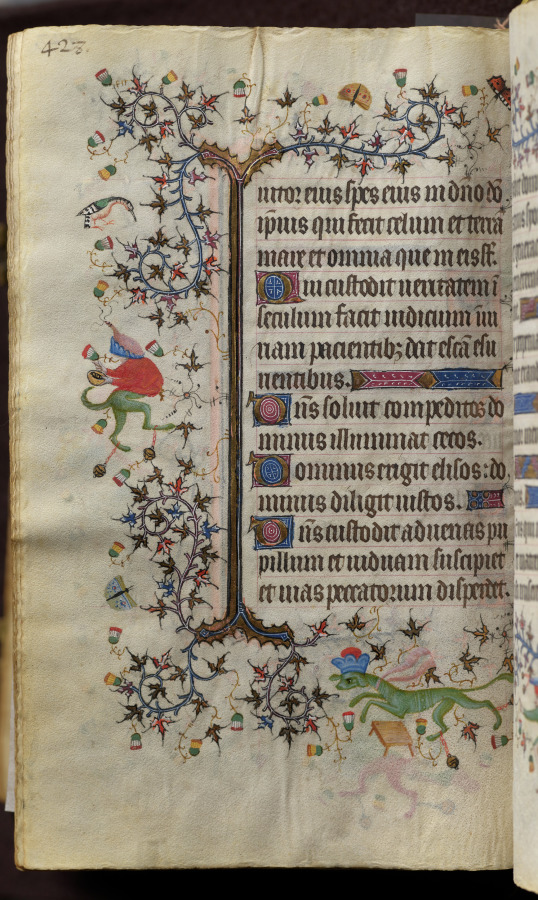 423.
iutor eius spes eius in dno dō
ipsius qui fecit celum et terra
mare et omnia que in eis sūt.
Qui custodit ueritatem ī
seculum facit iudicium iniu
riam pacientibꝫ dat escā esu
rientibus.
Dñs soluit compeditos do
minus illuminat cecos.
Dominus erigit elisos: do
minus diligit iustos.
Dñs custodit aduenas pu
pillum et uiduam suscipiet
et uias peccatorum disperdet.